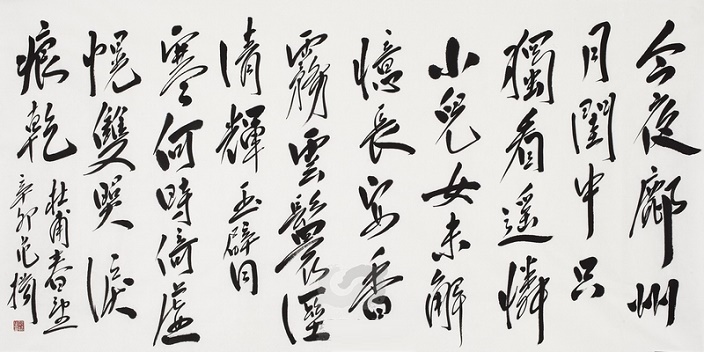 今夜鄜州
月閨中只
獨看遙憐
小兒女未解
憶長安香
霧雲鬟溼
清輝玉臂
寒何時倚虛
幌雙照淚
痕乾
杜甫春望
辛卯